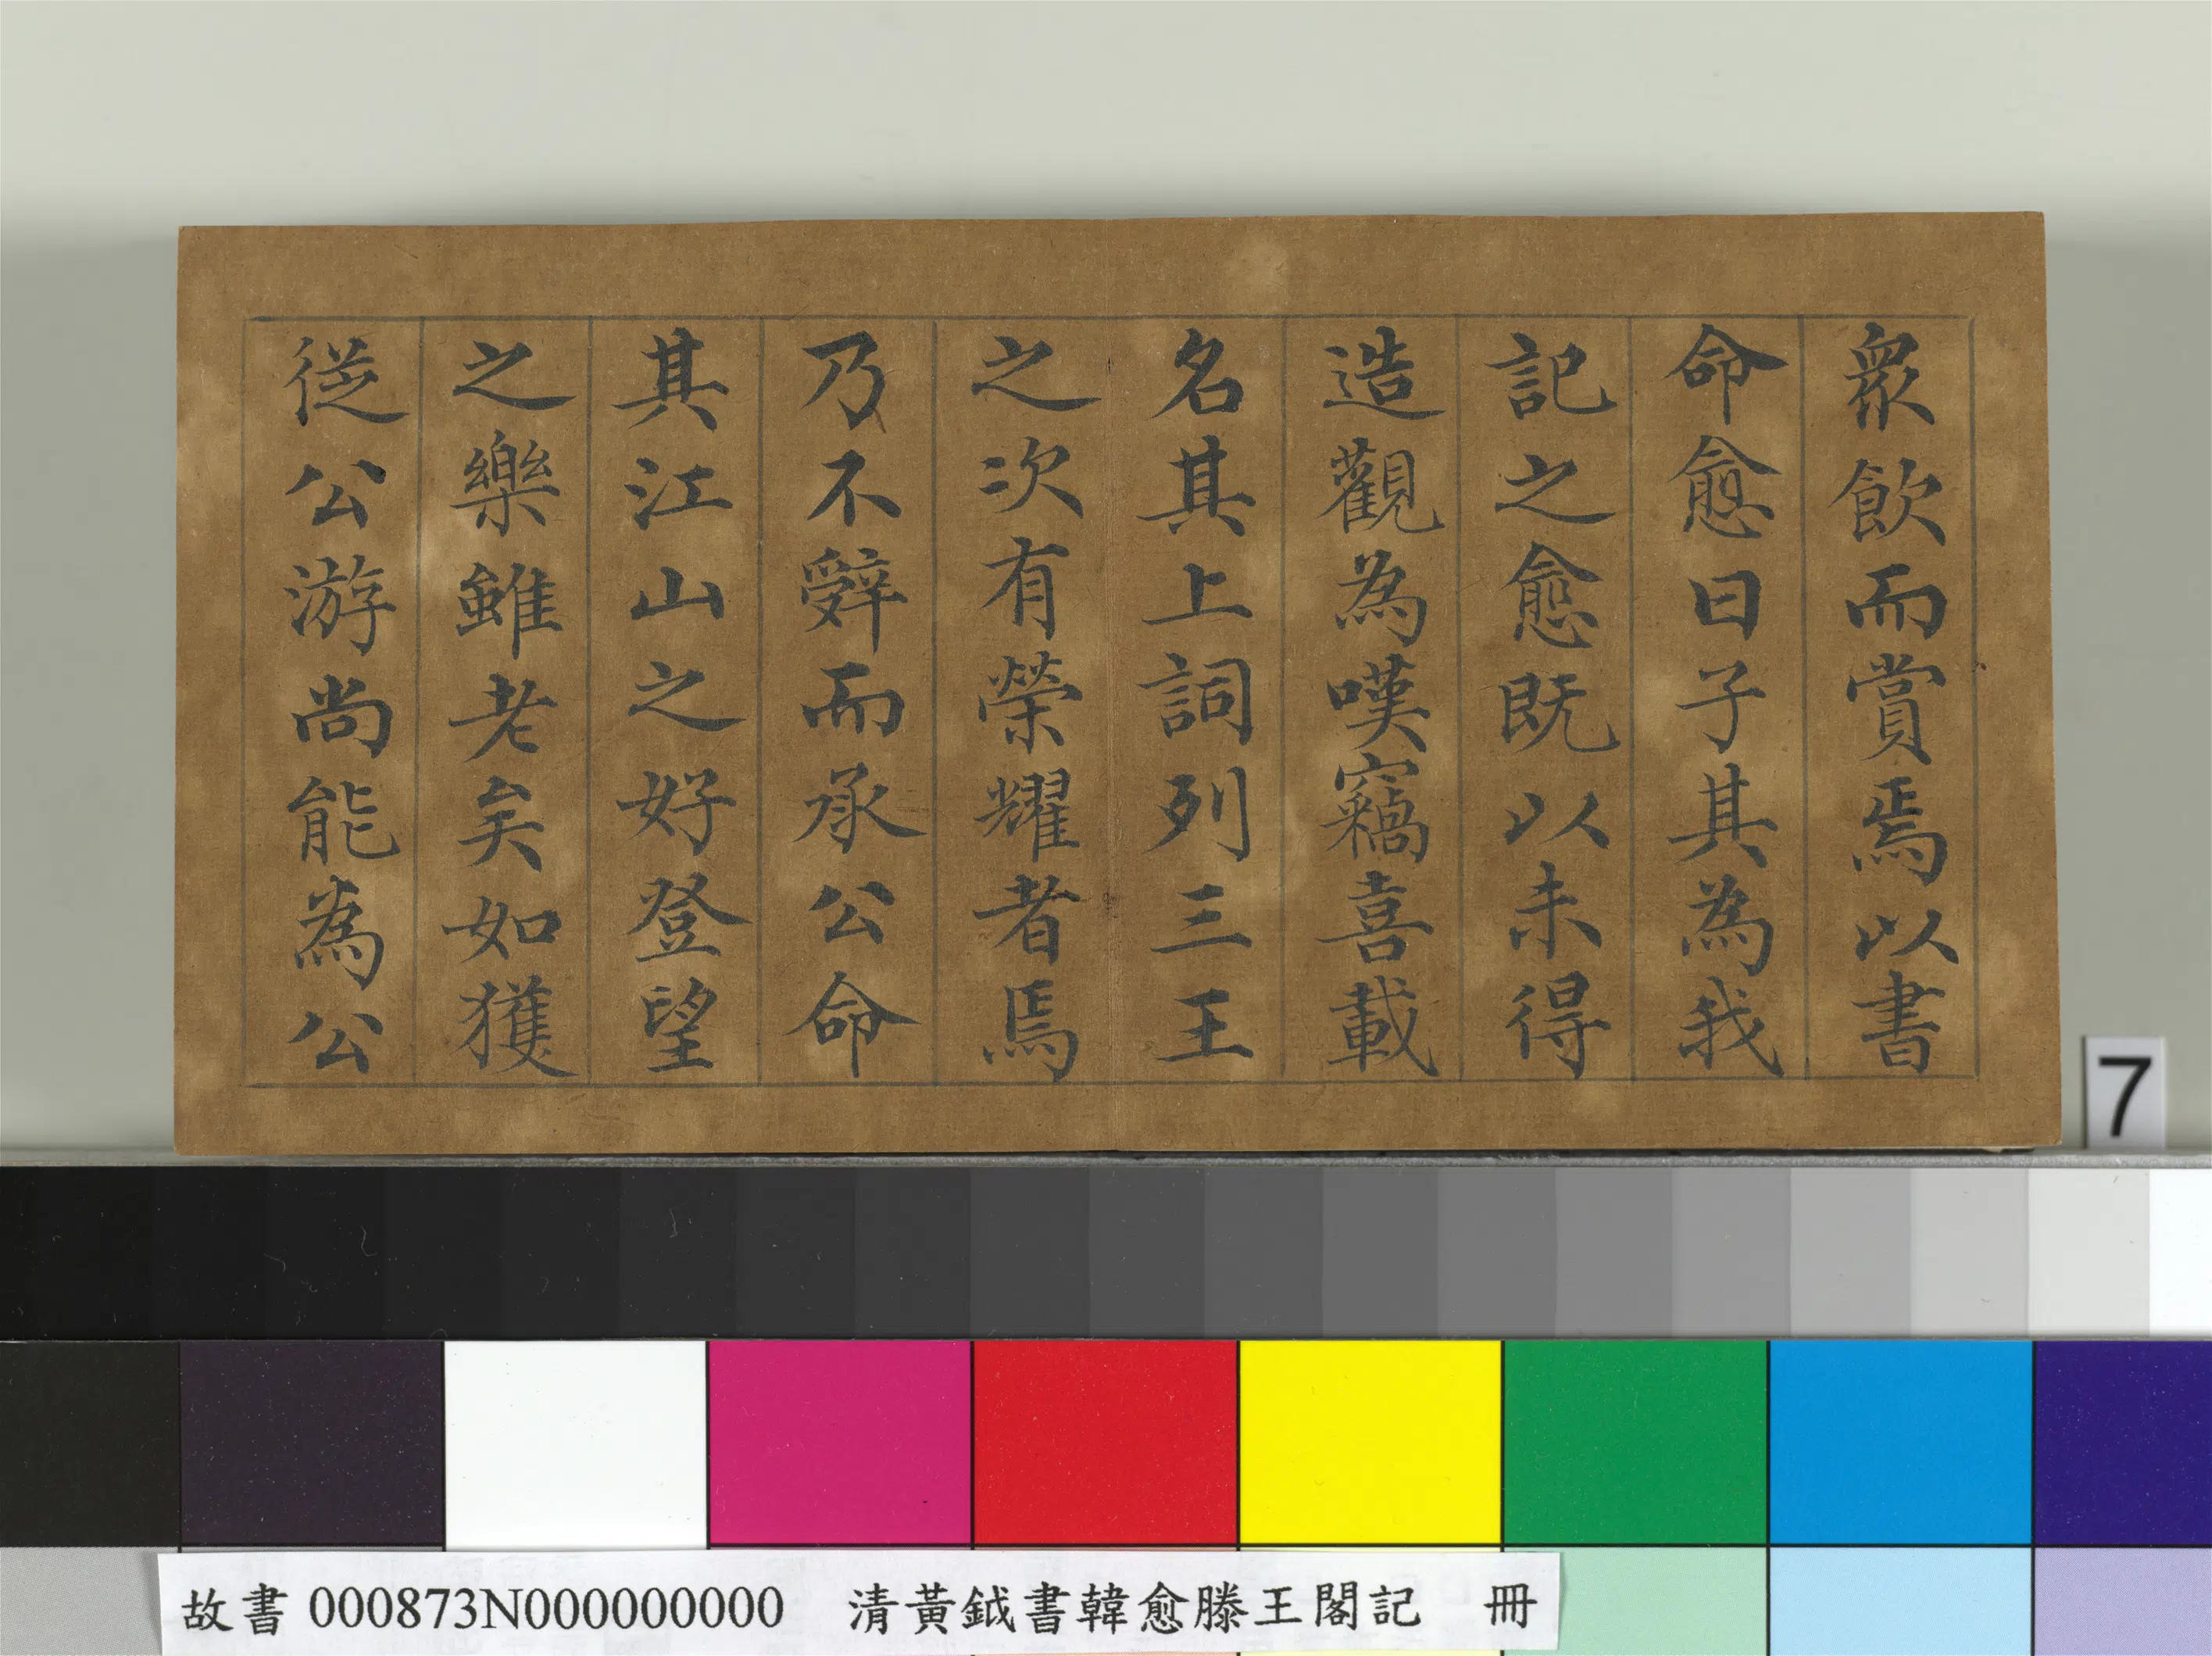 衆飲而賞焉以書
命愈曰子其為我
記之愈既以未得
造觀為嘆竊喜載
名其上詞列三王
之次有榮耀者焉
乃不辤而承公命
其江山之好登望
之樂雖老矣如獲
從公游尚能為公
7
故書 000873N000000000 清黃鉞書韓愈滕王閣記 冊